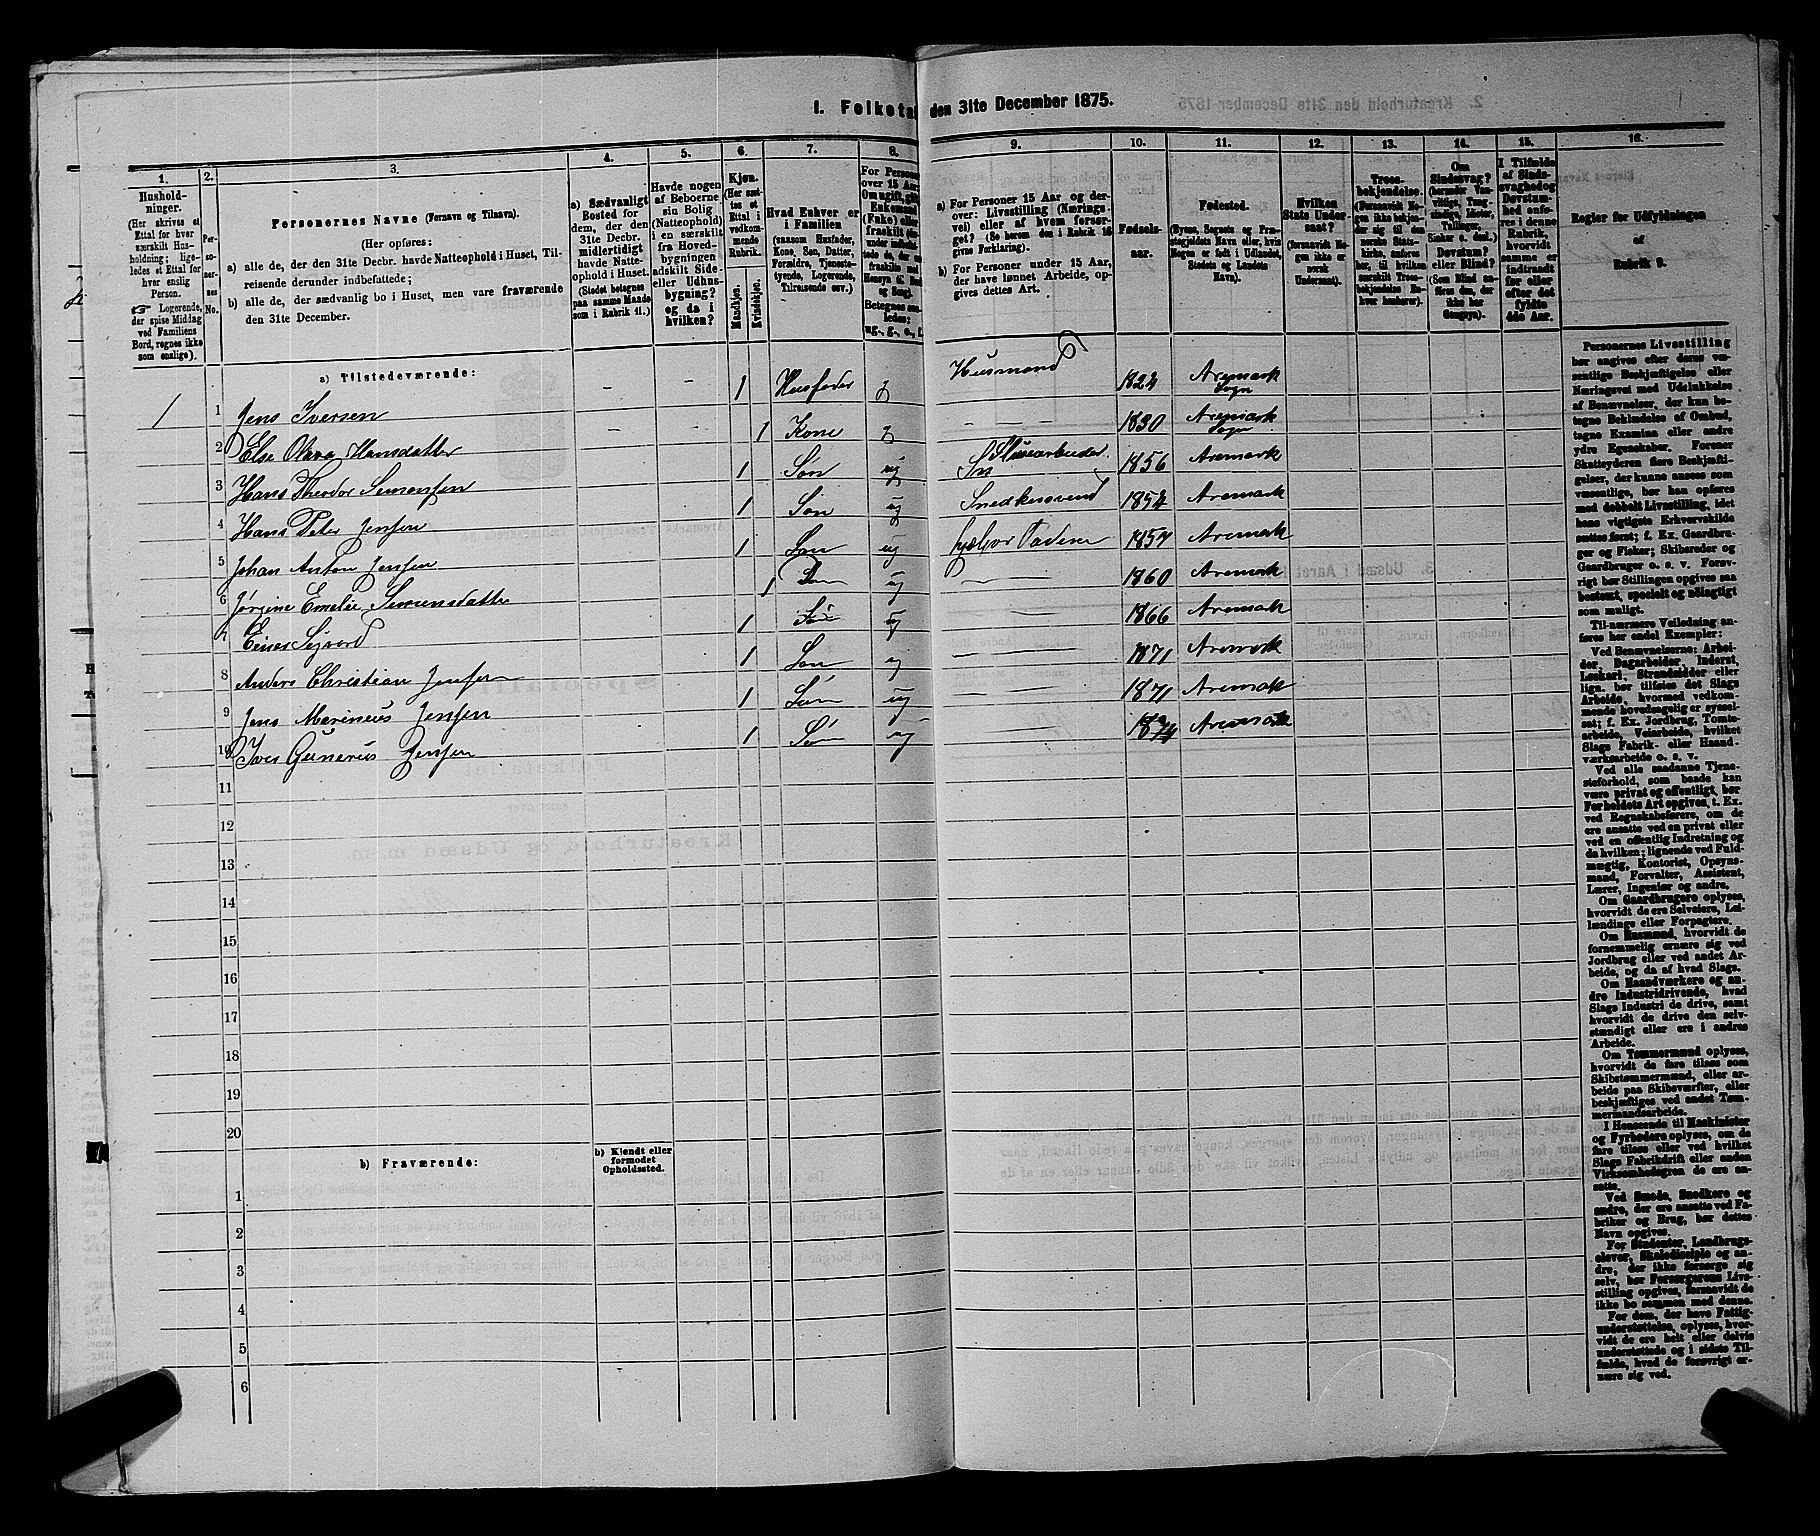 I. Folketal den 31te December 1875.
1. 2. 3. 4. 5. 6. 7. 8. 9. 10. 11. 12. 13. 14. 15. 16.
Husholdninger.
(Her skrives et
Ettal for hver
særskilt Husholdning; ligeledes
et Ettal for
hver enslig
Person.
Logerende,
der spise Middag
ved Familiens
Bord, regnes ikke
som enslige).
Personernes No.
Personernes Navne (Fornavn og Tilnavn).
(Her opføres:
a) alle de, der den 31te Decbr. havde Natteophold i Huset, Tilreisende derunder indbefattede;
b) alle de, der sædvanlig bo i Huset, men vare fraværende
den 31te December.
a) Sædvanligt
Bosted for
dem, der den
31te Decbr.
midlertidigt
havde Natteophold i Huset.
(Stedet betegnes
paa samme Maade
som i Rubrik 11.)
Havde nogen
af Beboerne
sin Bolig
(Natteophold)
i en særskilt
fra Hovedbygningen
adskilt Side- eller Udhusbygning?
og da i
hvilken?
Kjøn.
(Her sættes et
Ettal i
vedkommende
Rubrik.
Mandkjøn.
Kvindekjøn.
Hvad Enhver er
i Familien
(saasom Husfader,
Kone, Søn, Datter,
Forældre, Tjenestetyende, Logerende,
Tilreisende osv.)
For Personer
over 15 Aar:
Om ugift, gift,
Enkemand
(Enke) eller
fraskilt
Betegnes saaledes:
ug., g., e., f.
a) For Personer 15 Aar og derover: Livsstilling (Næringsvei) eller af hvem forsørget? (Se herom den i Rubrik 16
givne Forklaring).
b) For Personer under 15 Aar,
der have lønnet Arbeide, opgives dettes Art.
Fødselsaar.
Fødested.
(Byens, Sognets og Præstegjeldets Navn eller, hvis
Nogen er født i Udlandet,
Stedets og Landets
Navn).
Hvilken
Stats Undersaat?
(forsaavidt Nogen ikke er
norsk
Undersaat).
Troesbekjendelse.
(Forsaavidt Nogen ikke bekjender sig til den
norske Statskirke, anføres
her, til hvilken
særskilt Troesbekjendelse Enhver henhører).
Om
Sindssvag?
Døvstum?
eller Blind?
I Tilfælde
af Sindssvaghed og
Døvstumhed anføres i denne
Rubrik,
hvorvidt
samme er
indtraadt
før eller
efter det
fyldte
4de Aar.
Regler for Udfyldningen
af
Rubrik 9.
a) Tilstedeværende:
1 1 Jens Iversen - - 1 Husfader g Husmand 1824 Aremark Sogn
2 Else Olava Hansdatter - - 1 Kone g - 1830 Aremark Sogn
3 Hans Theodor Semensen 1 Søn ug Slusearbeider 1856 Aremark
4 Hans Peter Jensen 1 Søn ug Snedkersvend 1854 Aremark
5 Johan Anton Jensen 1 Søn ug hjelper Faderen 1857 Aremark
6 Jørgine Emelie Semensdatter 1 ug - 1860 Aremark
7 Einer Sigvard 1 Søn ug - 1866 Aremark
8 Anders Christian Jensen 1 Søn ug - 1871 Aremark
9 Jens Marinius Jensen 1 Søn ug - 1871 Aremark
10 Iver Gunerius Jensen 1 Søn ug - 1874 Aremark
11
12
13
14
15
16
17
18
19
20
b) Fraværende:
b) Kjendt eller
formodet
Opholdssted.
1
2
3
4
5
6
Personernes Livsstilling
bør angives efter deres væsentlige Beskjæftigelse eller
Næringsvei med Udelukkelse
af Benævnelser, der kun betegne Beklædelse af Ombud,
tagne Examina eller andre
ydre Egenskaber. Forener
Skatteyderen flere Beskjæftigelser, der kunne ansees som
væsentlige, bør han opføres
med dobbelt Livsstilling, idet
hans vigtigste Erhvervskilde
sættes først; f. Ex. Gaardbruger og Fisker; Skibsreder og
Gaardbruger o. s. v. Forøvrigt bør Stillingen opgives saa
bestemt, specielt og nøiagtigt
som muligt.
Til nærmere Veiledning anføres her endel Exempler:
Ved Benævnelserne: Arbeider, Dagarbeider, Inderst,
Løskarl, Strandsidder eller
lign. bør tilføies det Slags
Arbeide, hvormed vedkommende hovedsagelig er sysselsat; f. Ex. Jordbrug, Tomtearbeide, Veiarbeide, hvilket
Slags Fabrik- eller Haandværksarbeide o. s. v.
Ved alle saadanne Tjenesteforhold, som baade kan
være privat og offentligt, bør
Forholdets Art opgives, t. Ex.
ved Regnskabsførere, om de
ere ansatte ved en privat eller
ved en offentlig Indretning og
da hvilken; lignende ved Fuldmægtig, Kontorist, Opsynsmand, Forvalter, Assistent,
Lærer, Ingeniør og andre.
Om Gaardbrugere oplyses,
hvorvidt de ere Selveiere, Leilændinge eller Forpagtere.
Om Husmænd, hvorvidt de
fornemmelig ernære sig ved
Jordbrug eller ved andet Arbeide, og da af hvad Slags.
Om Haandværkere og andre Industridrivende, hvad
Slags Industri de drive, samt
hvorvidt de drive den selvstændigt eller ere i andres
Arbeide.
Om Tømmermænd oplyses,
hvorvidt de fare tilsøs som
Skibstømmermænd, eller arbeide paa Skibsværfter, eller
beskjæftiges ved andet Tømmermandsarbeide.
I Henseende til Maskinister
og Fyrbødere oplyses, om de
fare tilsøs eller ved hvilket
Slags Fabrikdrift eller anden
Virksomhedsgren de ere ansatte.
Ved Smede, Snedkere og
andre, der ere ansatte ved Fabriker og Brug, bør dettes
Navn opgives.
For Studenter, Landbrugselever, Skoledisciple og andre, der ikke forsørge sig
selv, bør Forsørgerens Livsstilling opgives, forsaavidt de
ikke bo sammen med denne.
For dem, der have Fattigunderstøttelse, oplyses, hvorvidt de ere helt eller delvis
understøttede og i sidste Tilfælde, hvad de forøvrigt ernære sig ved.